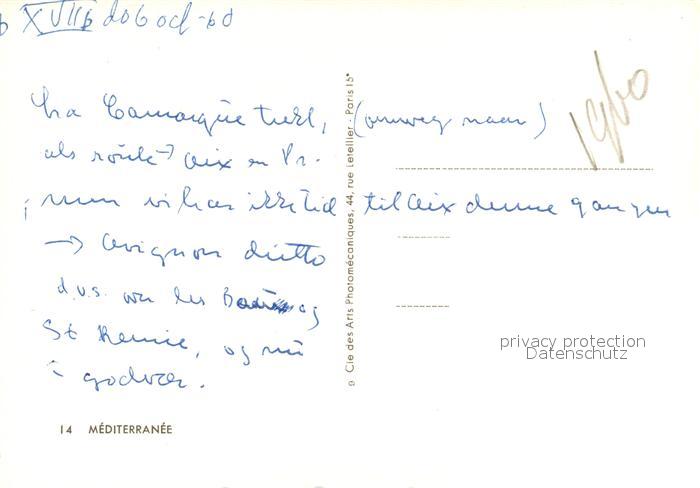 XVIIb do6 oct -60
La Camargue turl, (omveg naar)
als route → Aix en Pr.
men vi har ikke tid til Aix denne gangen
→ Avignon ditto
d.v.s. over les Baux og
St Remie, og nu
i godvær.
1960
14 MÉDITERRANÉE
© Cie des Arts Photomécaniques, 44, rue Letellier - Paris 15e
privacy protection
Datenschutz